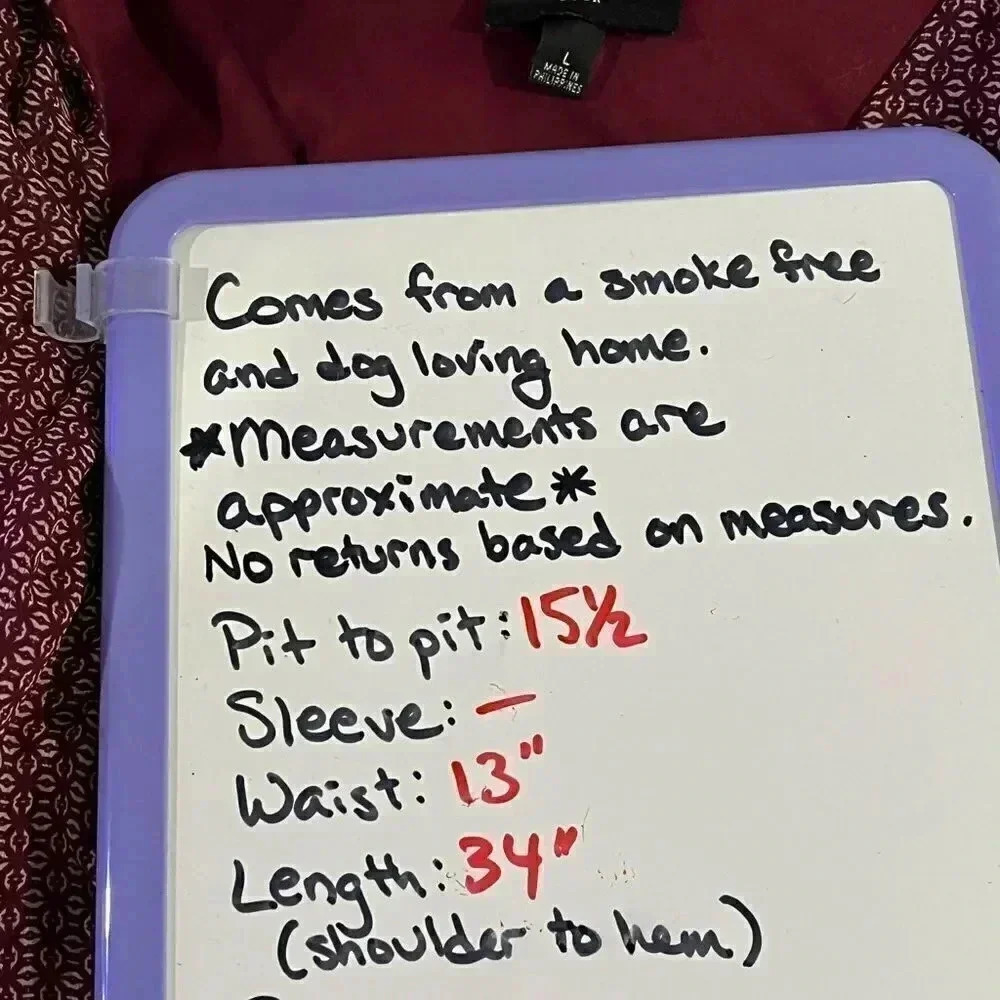 L
MADE IN
PHILIPPINES
Comes from a smoke free
and dog loving home.
*Measurements are
approximate*
No returns based on measures.
Pit to pit: 15½
Sleeve: —
Waist: 13"
Length: 34"
(shoulder to hem)